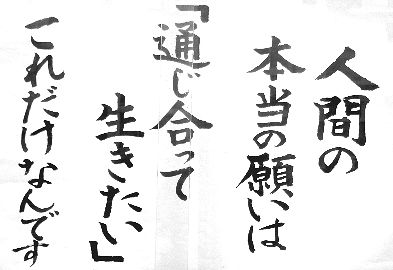 人間の
本当の願いは
「通じ合って
生きたい」
これだけなんです